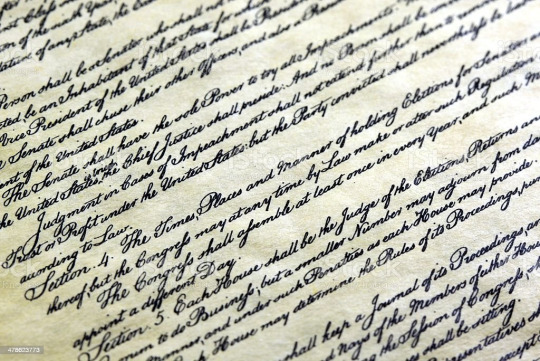 of any state, the Exec
Person shall be a Senator who shall not
ted be an Inhabitant of that State for which
Vice President of the United States shall be Presid
Senate shall chuse their other Officers, and also a
ent of the United States.
The Senate shall have the sole Power to try all Impeachments.
the United States, the Chief Justice shall preside: And no Person shall be conv
Judgment in Cases of Impeachment shall not extend further than to
Trust or Profit under the United States: but the Party convicted shall nevertheless be
according to Law.
Section. 4. The Times, Places and Manner of holding Elections for Senators
thereof; but the Congress may at any time by Law make or alter such Regulations
The Congress shall assemble at least once in every Year, and such M
appoint a different Day.
Section. 5. Each House shall be the Judge of the Elections, Returns an
to do Business; but a smaller Number may adjourn from da
Manner, and under such Penalties as each House may provide.
House may determine the Rules of its Proceedings, pun
shall keep a Journal of its Proceedings, an
Nays of the Members of either House
the Session of Congress, sh
shall be sitting.
478623773